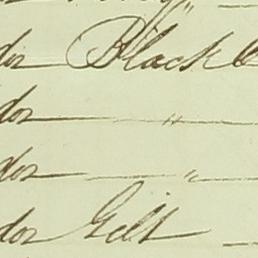 do Black
do "
do "
do Gilt